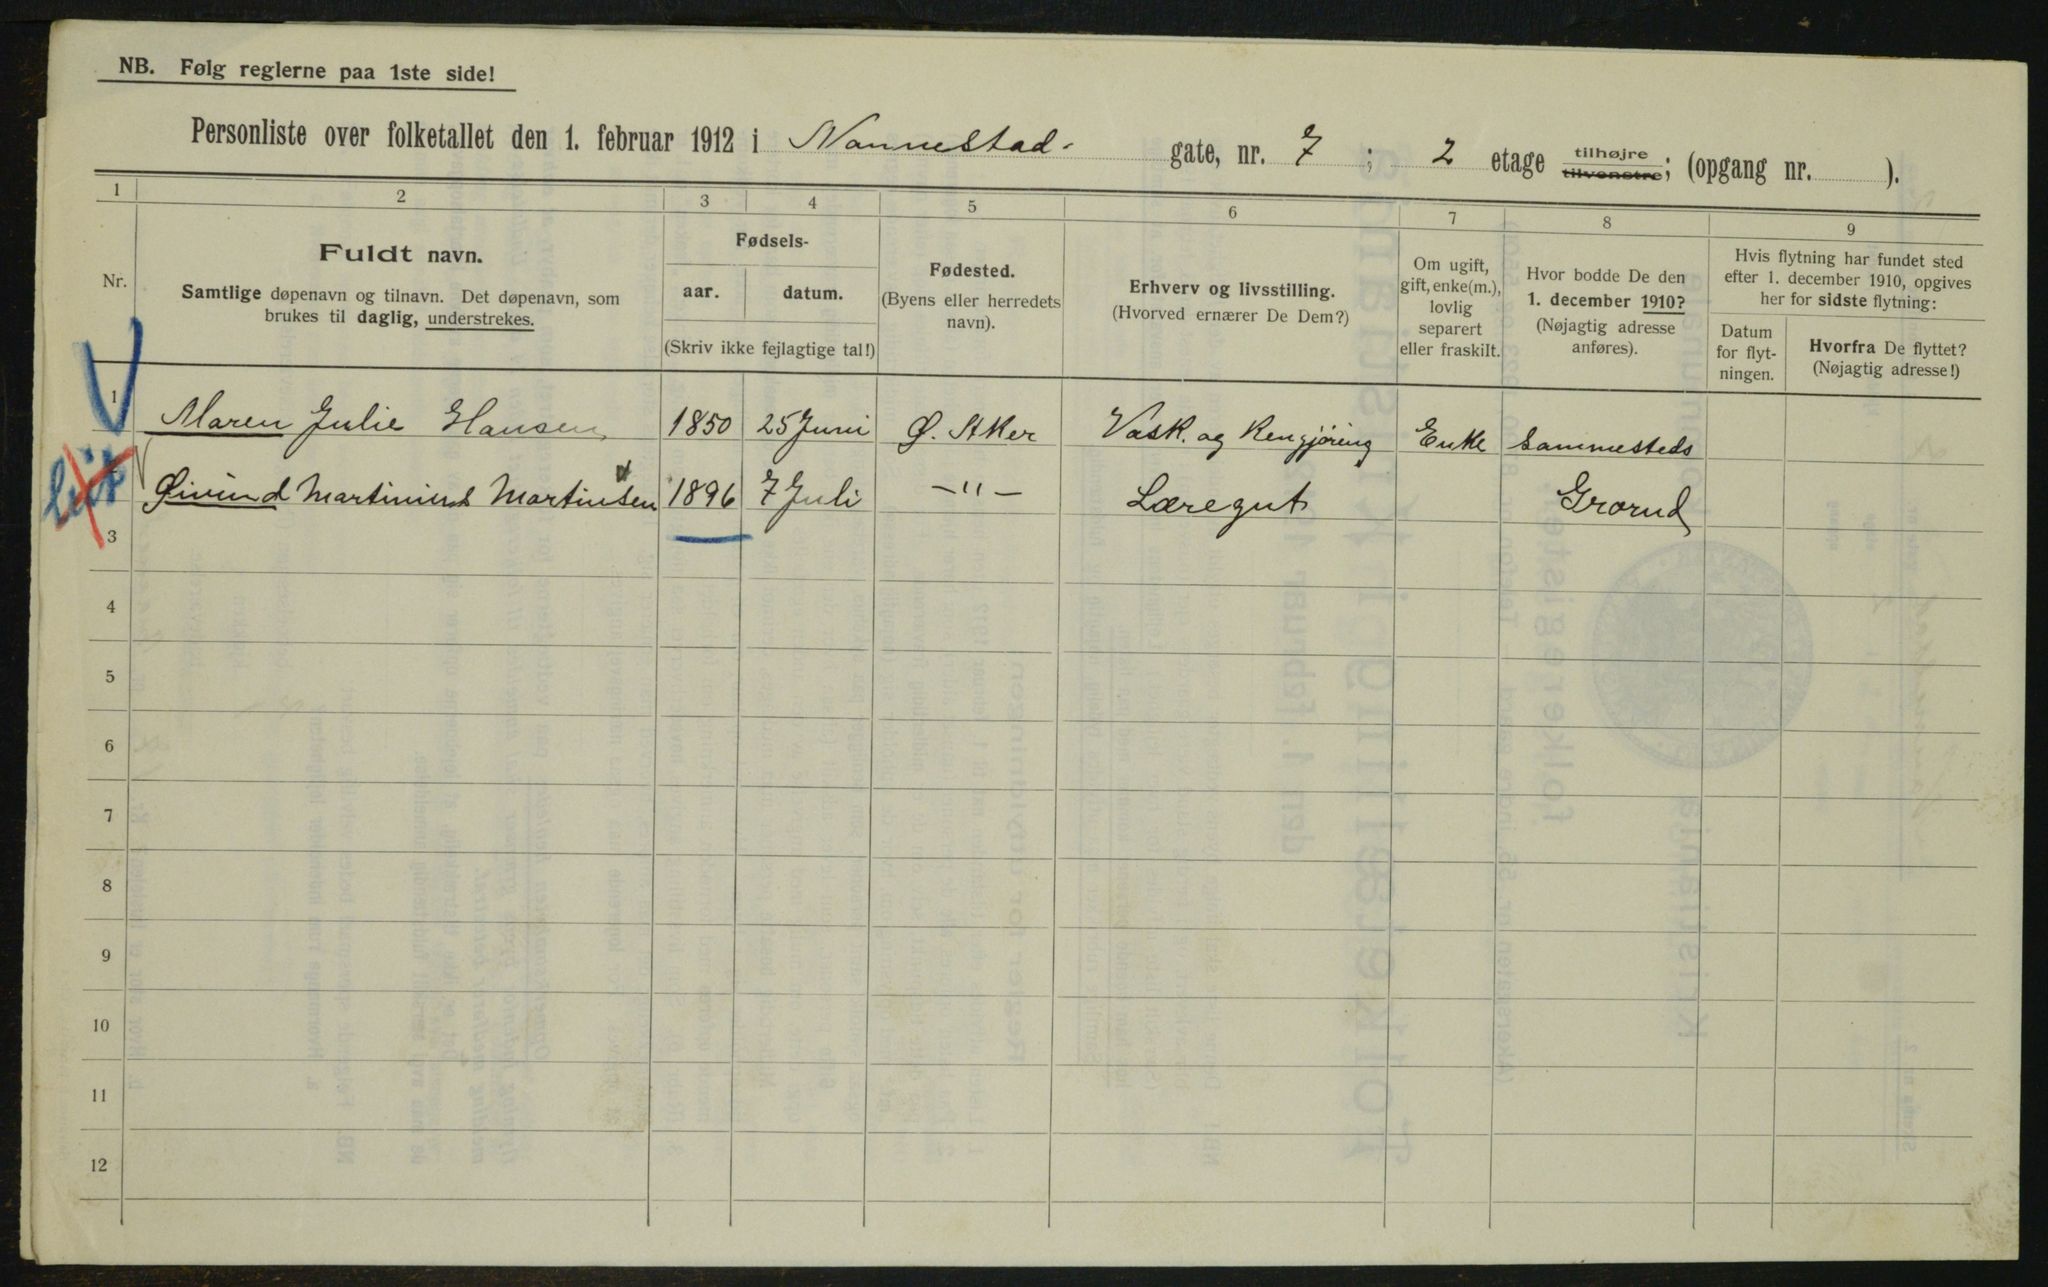 NB. Følg reglerne paa 1ste side!
Personliste over folketallet den 1. februar 1912 i Nannestad- gate, nr. 7 ; 2 etage tilhøjre tilvenstre; (opgang nr. ).
1 2 3 4 5 6 7 8 9
Nr.
Fuldt navn.
Samtlige døpenavn og tilnavn. Det døpenavn, som
brukes til daglig, understrekes.
Fødsels-
aar. datum.
(Skriv ikke fejlagtige tal!)
Fødested.
(Byens eller herredets
navn).
Erhverv og livsstilling.
(Hvorved ernærer De Dem?)
Om ugift,
gift, enke(m.),
lovlig
separert
eller fraskilt.
Hvor bodde De den
1. december 1910?
(Nøjagtig adresse
anføres).
Hvis flytning har fundet sted
efter 1. december 1910, opgives
her for sidste flytning:
Datum
for flyt-
ningen.
Hvorfra De flyttet?
(Nøjagtig adresse!)
1 Maren Julie Hansen 1850 25 Juni Ø. Aker Vask. og Rengjøring Enke Sammesteds
Øivind Martinius Martinsen 1896 7 Juli —"— Læregut Grorud
3
4
5
6
7
8
9
10
11
12